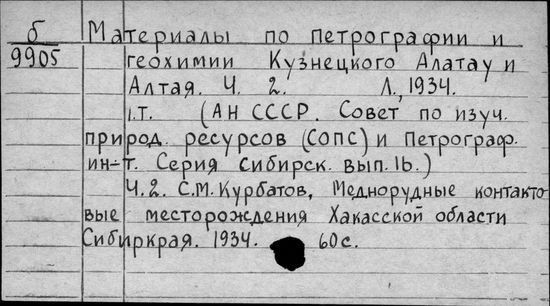 б
9905
Материалы по петрографии и
геохимии Кузнецкого Алатау и
Алтая. Ч. 2. Л., 1934.
1.Т. (АН СССР. Совет по изуч.
природ. ресурсов (СОПС) и Петрограф.
ин-т. Серия сибирск. вып. 16.)
Ч. 2. С.М. Курбатов, Меднорудные контакто-
вые месторождения Хакасской области
Сибиркрая. 1934. 60с.